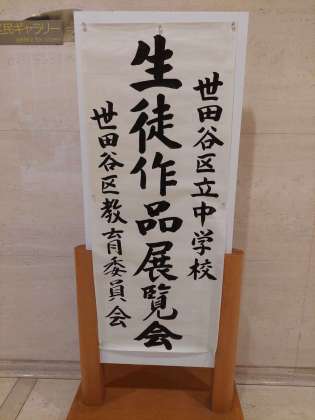 世田谷区立中学校
生徒作品展覧会
世田谷区教育委員会
民ギャラリー